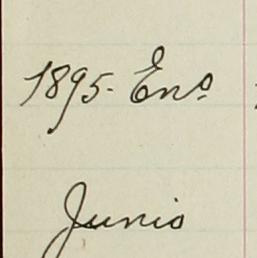 1895. Enº
Junio